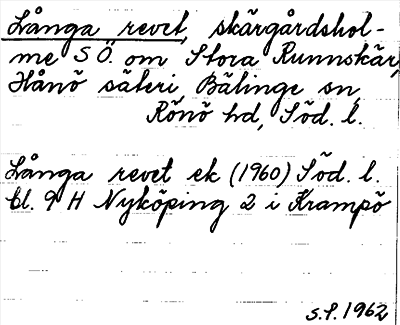 Långa revet, skärgårdshol-
me SÖ. om Stora Runnskär,
Hånö säteri, Bälinge sn,
Rönö hd, Söd. l.
Långa revet ek (1960) Söd. l.
bl. 9 H Nyköping 2 i Krampö
s.f. 1962